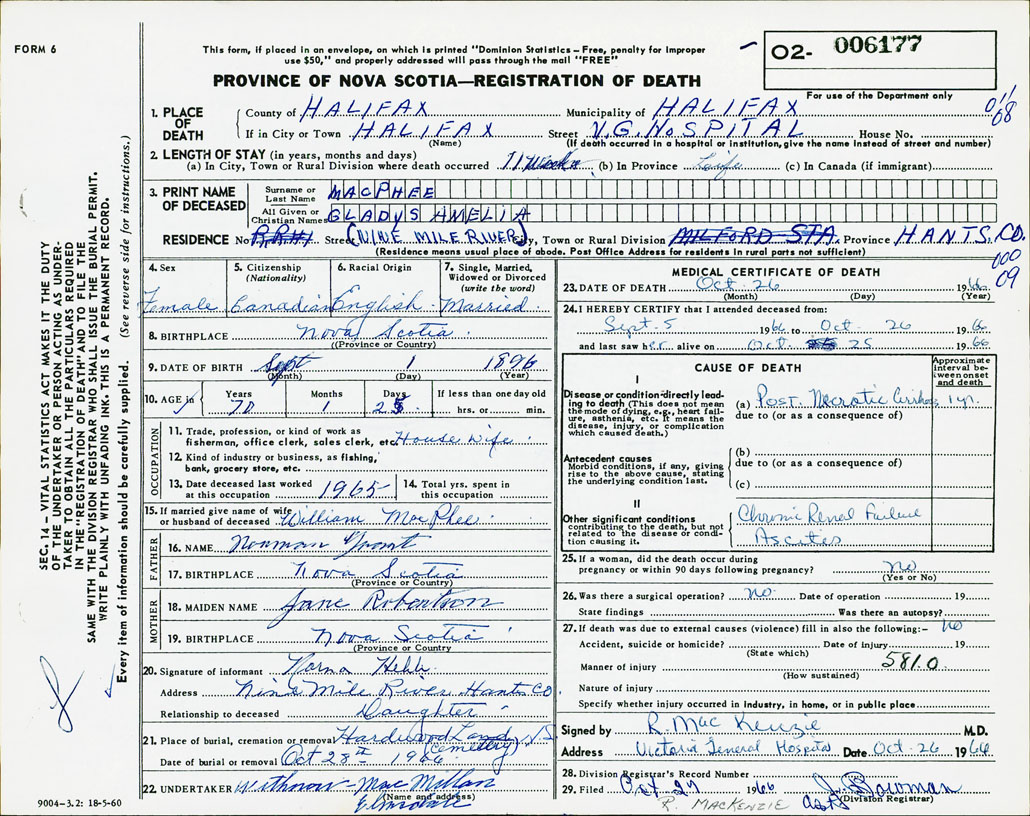 FORM 6
This form, if placed in an envelope, on which is printed "Dominion Statistics – Free, penalty for improper
use $50," and properly addressed will pass through the mail "FREE"
PROVINCE OF NOVA SCOTIA—REGISTRATION OF DEATH
02- 006177
For use of the Department only
011
08
1. PLACE OF DEATH
County of HALIFAX Municipality of HALIFAX
If in City or Town HALIFAX Street V.G. HOSPITAL House No.
(Name) (If death occurred in a hospital or institution, give the name instead of street and number)
2. LENGTH OF STAY (in years, months and days)
(a) In City, Town or Rural Division where death occurred (b) In Province Life (c) In Canada (if immigrant)
3. PRINT NAME OF DECEASED
Surname or Last Name MACPHEE
All Given or Christian Names GLADYS AMELIA
RESIDENCE No. R.R.#1 Street (NINE MILE RIVER) City, Town or Rural Division MILFORD STA. Province HANTS, CO.
(Residence means usual place of abode. Post Office Address for residents in rural parts not sufficient)
000
09
4. Sex 5. Citizenship (Nationality) 6. Racial Origin 7. Single, Married, Widowed or Divorced (write the word)
Female Canadian English Married
8. BIRTHPLACE Nova Scotia
(Province or Country)
9. DATE OF BIRTH Sept 1 1896
(Month) (Day) (Year)
10. AGE in Years Months Days If less than one day old
70 1 25 hrs. or min.
OCCUPATION
11. Trade, profession, or kind of work as
fisherman, office clerk, sales clerk, etc. House wife
12. Kind of industry or business, as fishing,
bank, grocery store, etc.
13. Date deceased last worked at this occupation 1965 14. Total yrs. spent in this occupation
15. If married give name of wife or husband of deceased William MacPhee
FATHER
16. NAME Norman Grant
17. BIRTHPLACE Nova Scotia
(Province or Country)
MOTHER
18. MAIDEN NAME Jane Robertson
19. BIRTHPLACE Nova Scotia
(Province or Country)
20. Signature of informant Norma
Address Nine Mile River Hants Co.
Relationship to deceased Daughter
21. Place of burial, cremation or removal Hardwood Lands N.S.
(cemetery)
Date of burial or removal Oct 28 1966
22. UNDERTAKER Withrow - MacMillan
(Name and address)
Elmsdale
9004–3.2: 18-5-60
MEDICAL CERTIFICATE OF DEATH
23. DATE OF DEATH Oct. 26 1966
(Month) (Day) (Year)
24. I HEREBY CERTIFY that I attended deceased from:
Sept. 5 1966 to Oct 26 1966
and last saw her alive on Oct 25 1966
CAUSE OF DEATH
Approximate interval between onset and death
I
Disease or condition directly leading to death (This does not mean
the mode of dying, e.g., heart failure, asthenia, etc. It means the
disease, injury, or complication
which caused death.)
(a) Post. Necrotic Cirrhosis 1 yr.
due to (or as a consequence of)
Antecedent causes
Morbid conditions, if any, giving
rise to the above cause, stating
the underlying condition last.
(b)
due to (or as a consequence of)
(c)
II
Other significant conditions
contributing to the death, but not
related to the disease or condition causing it.
Chronic Renal Failure
Ascites
25. If a woman, did the death occur during
pregnancy or within 90 days following pregnancy? no
(Yes or No)
26. Was there a surgical operation? no Date of operation 19
State findings Was there an autopsy?
27. If death was due to external causes (violence) fill in also the following:– No
Accident, suicide or homicide? Date of injury 19
(State which)
Manner of injury 581.0
(How sustained)
Nature of injury
Specify whether injury occurred in Industry, in home, or in public place
Signed by R. MacKenzie M.D.
Address Victoria General Hospital Date Oct. 26 1966
28. Division Registrar's Record Number
29. Filed Oct 27 1966
(Division Registrar)
R. MACKENZIE
SEC. 14 – VITAL STATISTICS ACT MAKES IT THE DUTY
OF THE UNDERTAKER OR PERSON ACTING AS UNDER-
TAKER TO OBTAIN ALL THE PARTICULARS REQUIRED
IN THE "REGISTRATION OF DEATH" AND TO FILE THE
SAME WITH THE DIVISION REGISTRAR WHO SHALL ISSUE THE BURIAL PERMIT.
WRITE PLAINLY WITH UNFADING INK. THIS IS A PERMANENT RECORD.
Every item of information should be carefully supplied. (See reverse side for instructions.)